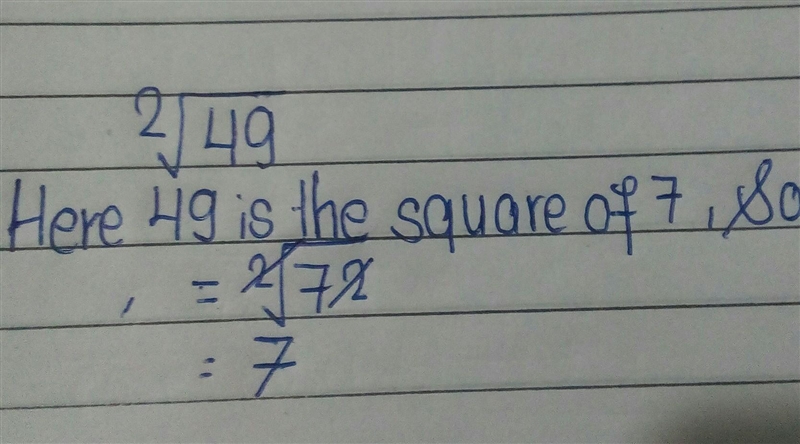 2√49
Here 49 is the square of 7, So
, = 2√72
= 7